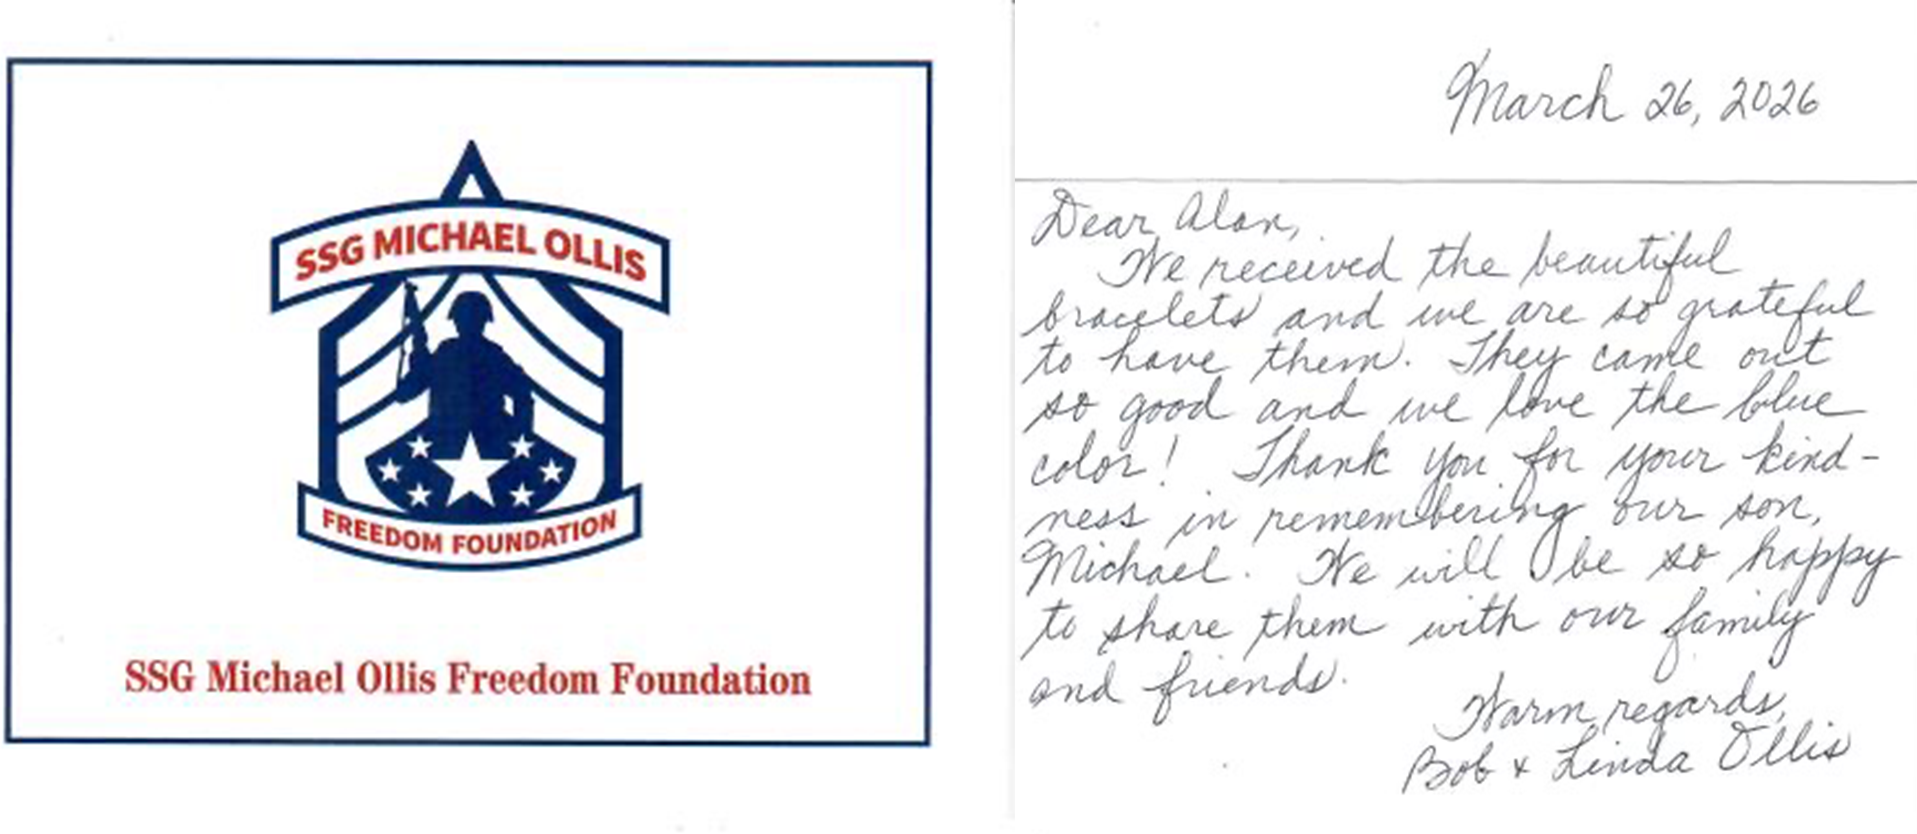 SSG MICHAEL OLLIS
FREEDOM FOUNDATION
SSG Michael Ollis Freedom Foundation
March 26, 2026
Dear Alan,
We received the beautiful
bracelets and we are so grateful
to have them. They came out
so good and we love the blue
color! Thank you for your kind-
ness in remembering our son,
Michael. We will be so happy
to share them with our family
and friends.
Warm regards,
Bob & Linda Ollis